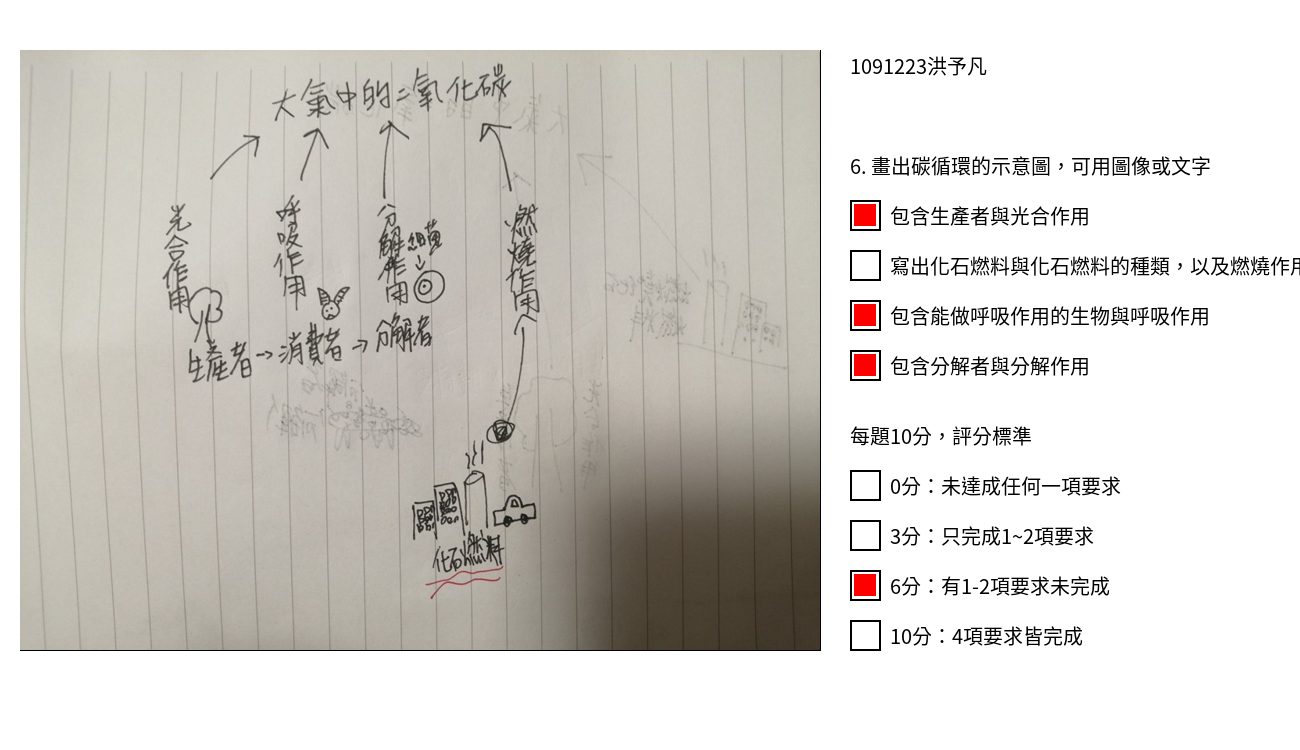 大氣中的二氧化碳
光合作用
呼吸作用
分解作用
細菌
燃燒作用
生產者→消費者→分解者
化石燃料
1091223洪予凡
6. 畫出碳循環的示意圖，可用圖像或文字
包含生產者與光合作用
寫出化石燃料與化石燃料的種類，以及燃燒作用
包含能做呼吸作用的生物與呼吸作用
包含分解者與分解作用
每題10分，評分標準
0分：未達成任何一項要求
3分：只完成1~2項要求
6分：有1-2項要求未完成
10分：4項要求皆完成